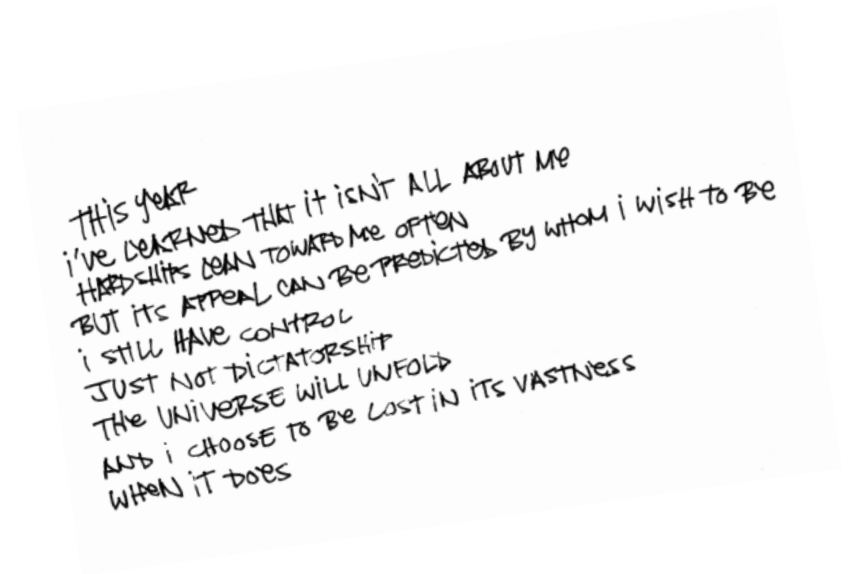 THIS YEAR
i'VE LEARNED THAT iT iSN'T ALL ABOUT ME
HARDSHIPS LEAN TOWARD ME OFTEN
BUT iTS APPEAL CAN BE PREDICTED BY WHOM i WISH TO BE
i STILL HAVE CONTROL
JUST NOT DICTATORSHIP
THE UNIVERSE WILL UNFOLD
AND i CHOOSE TO BE LOST IN iTS VASTNESS
WHEN iT DOES